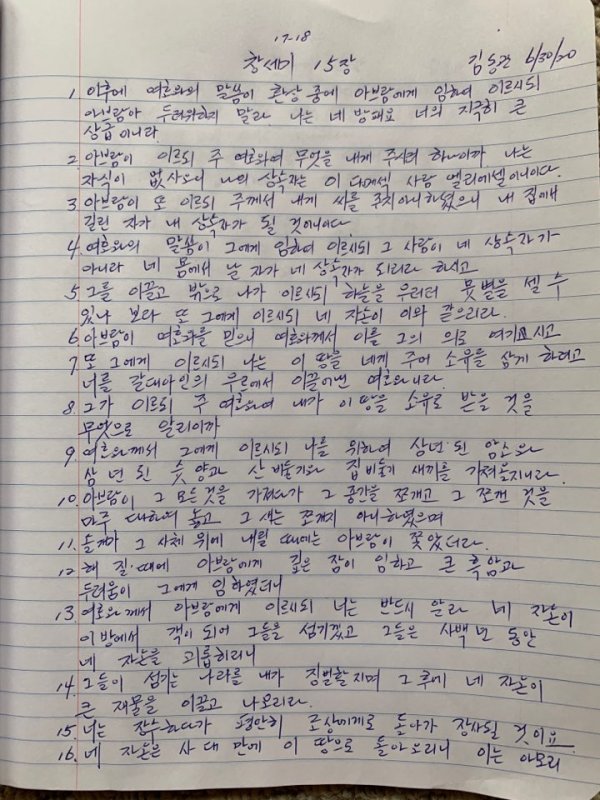 17-18
창세기 15장 김동건 6/30/20
1. 이후에 여호와의 말씀이 환상 중에 아브람에게 임하여 이르시되
아브람아 두려워하지 말라 나는 네 방패요 너의 지극히 큰
상급이니라
2. 아브람이 이르되 주 여호와여 무엇을 내게 주시려 하나이까 나는
자식이 없사오니 나의 상속자는 이 다메섹 사람 엘리에셀이니이다
3. 아브람이 또 이르되 주께서 내게 씨를 주지 아니하셨으니 내 집에서
길린 자가 내 상속자가 될 것이니이다
4. 여호와의 말씀이 그에게 임하여 이르시되 그 사람이 네 상속자가
아니라 네 몸에서 날 자가 네 상속자가 되리라 하시고
5. 그를 이끌고 밖으로 나가 이르시되 하늘을 우러러 뭇별을 셀 수
있나 보라 또 그에게 이르시되 네 자손이 이와 같으리라.
6. 아브람이 여호와를 믿으니 여호와께서 이를 그의 의로 여기시고
7. 또 그에게 이르시되 나는 이 땅을 네게 주어 소유를 삼게 하려고
너를 갈대아인의 우르에서 이끌어낸 여호와니라.
8. 그가 이르되 주 여호와여 내가 이 땅을 소유로 받을 것을
무엇으로 알리이까
9. 여호와께서 그에게 이르시되 나를 위하여 삼년된 암소와
삼 년 된 숫양과 산 비둘기와 집 비둘기 새끼를 가져올지니라.
10. 아브람이 그 모든 것을 가져다가 그 중간을 쪼개고 그 쪼갠 것을
마주 대하여 놓고 그 새는 쪼개지 아니하였으며
11. 솔개가 그 사체 위에 내릴 때에는 아브람이 쫓았더라.
12. 해 질 때에 아브람에게 깊은 잠이 임하고 큰 흑암과
두려움이 그에게 임하였더니
13. 여호와께서 아브람에게 이르시되 너는 반드시 알라 네 자손이
이방에서 객이 되어 그들을 섬기겠고 그들은 사백 년 동안
네 자손을 괴롭히리니
14. 그들이 섬기는 나라를 내가 징벌할지며 그 후에 네 자손이
큰 재물을 이끌고 나오리라.
15. 너는 장수하다가 평안히 조상에게로 돌아가 장사될 것이요
16. 네 자손은 사 대 만에 이 땅으로 돌아오리니 이는 아모리